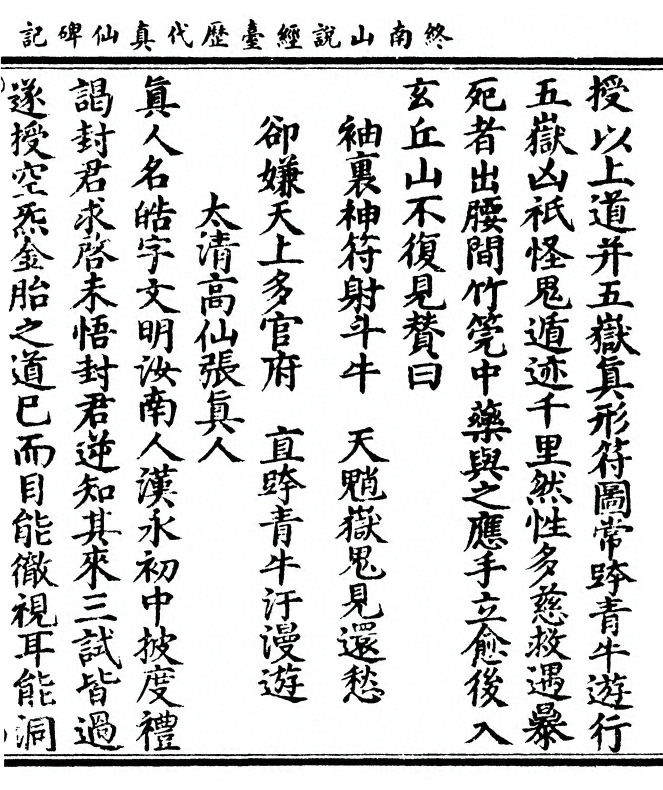 終南山說經臺歷代真仙碑記
授以上道并五嶽真形符圖常跨青牛遊行
五嶽凶祇怪鬼遁迹千里然性多慈救遇暴
死者出腰間竹筦中藥與之應手立愈後入
玄丘山不復見贊曰
袖裏神符射斗牛　天魈嶽鬼見還愁
卻嫌天上多官府　直跨青牛汗漫遊
太清高仙張真人
真人名皓字文明汝南人漢永初中披度禮
謁封君求啓未悟封君逆知其來三試皆過
遂授空炁金胎之道已而目能徹視耳能洞